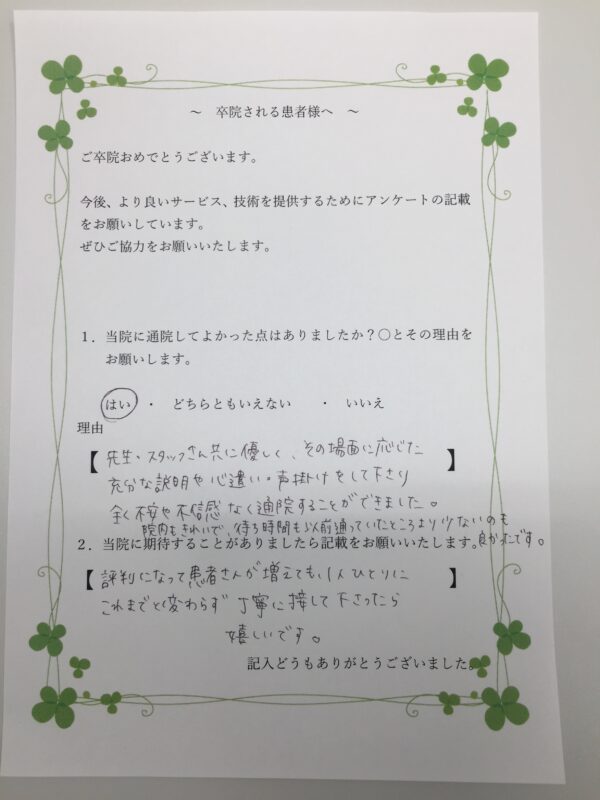 ～　卒院される患者様へ　～
ご卒院おめでとうございます。
今後、より良いサービス、技術を提供するためにアンケートの記載
をお願いしています。
ぜひご協力をお願いいたします。
1．当院に通院してよかった点はありましたか？○とその理由を
お願いします。
はい　・　どちらともいえない　　・　いいえ
理由
【先生、スタッフさん共に優しく、その場面に応じた】
充分な説明や心遣い・声掛けをして下さり
全く不安や不信感なく通院することができました。
院内もきれいで、待ち時間も以前通っていたところより少ないのも
良かったです。
2．当院に期待することがありましたら記載をお願いいたします。
【評判になって患者さんが増えても、1人ひとりに】
これまでと変わらず丁寧に接して下さったら
嬉しいです。
記入どうもありがとうございました。